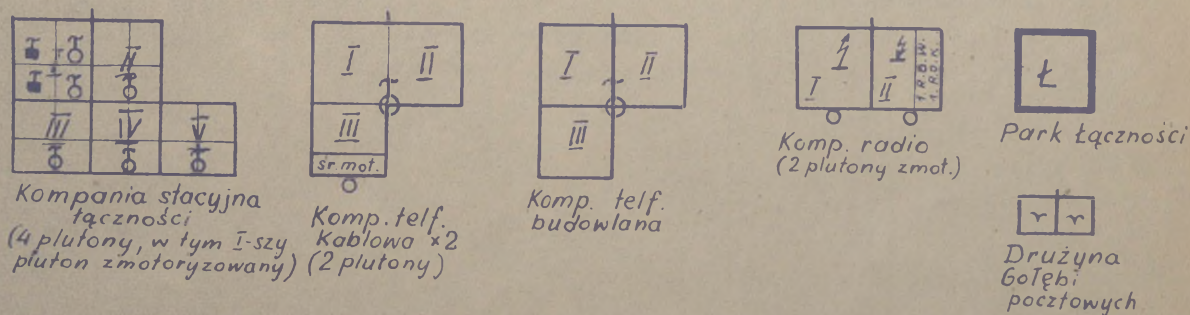 II
III
IV
V
Kompania stacyjna
łączności
(4 plutony, w tym I-szy
pluton zmotoryzowany)
I
II
III
śr. mot.
Komp. telf.
Kablowa x2
(2 plutony)
I
II
III
Komp. telf.
budowlana
I
II
1. R.B.W.
1. R.O.K.
Komp. radio
(2 plutony zmot.)
Ł
Park Łączności
Drużyna
Gołębi
pocztowych